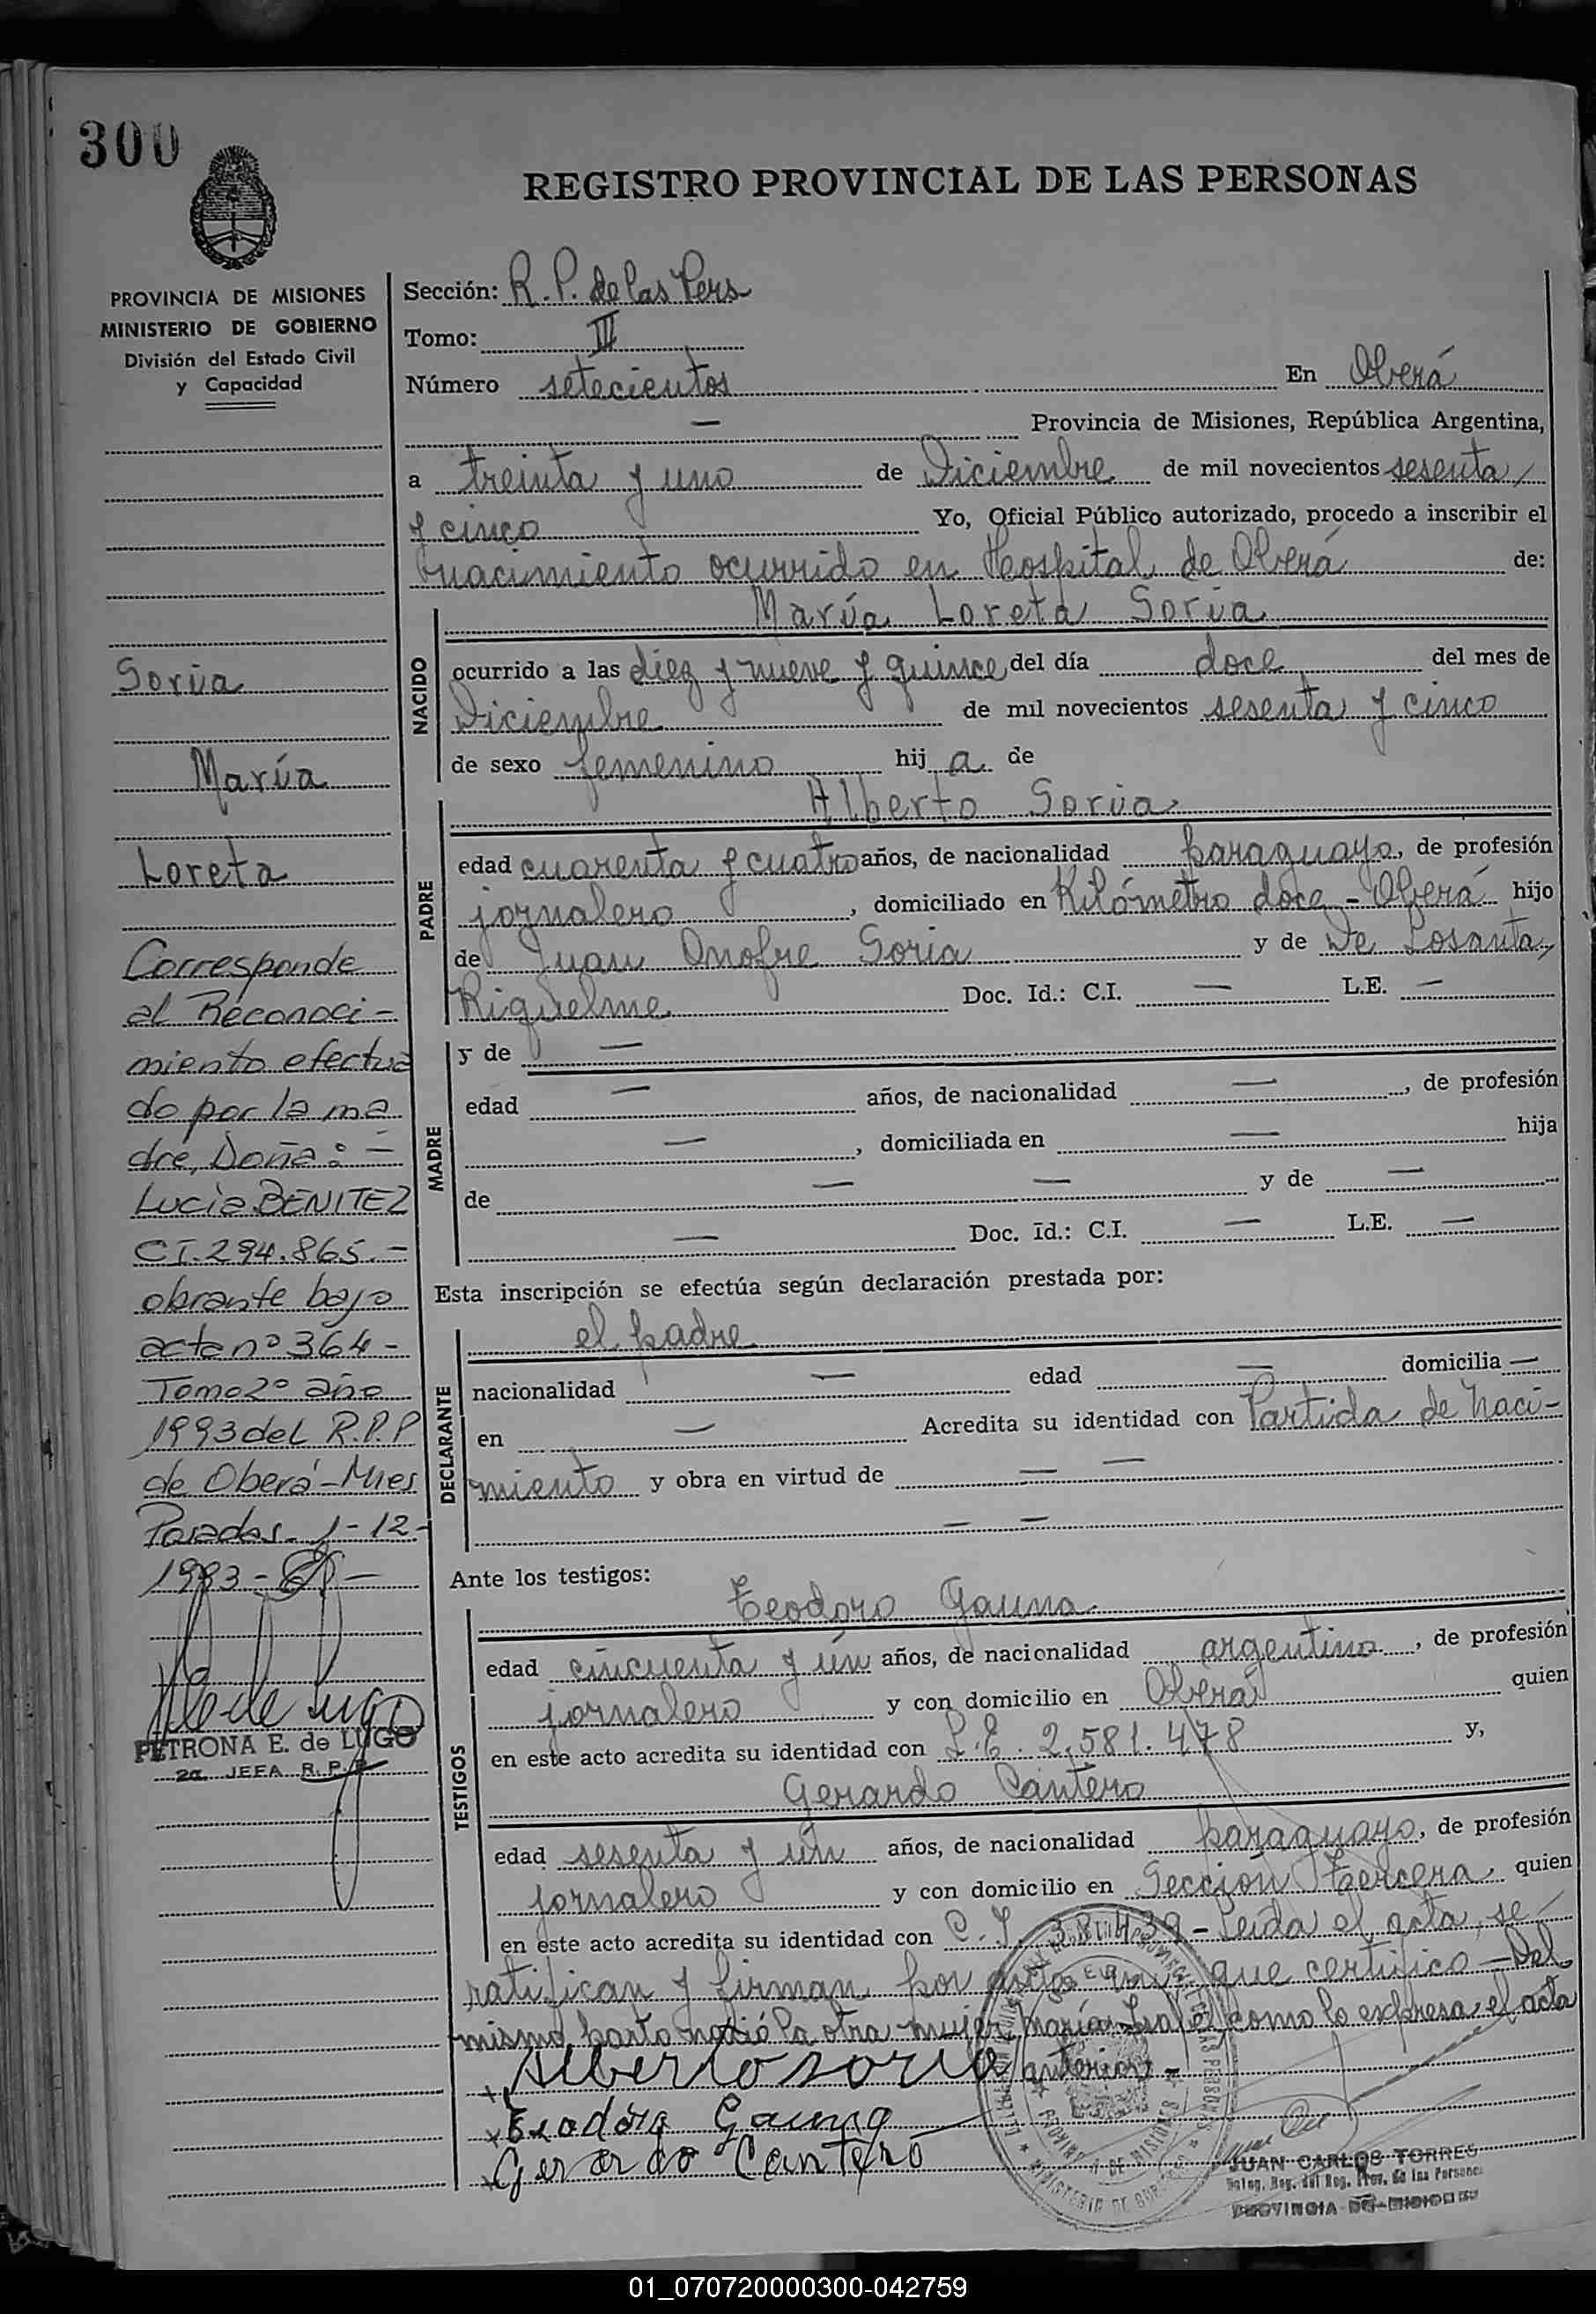 300
REGISTRO PROVINCIAL DE LAS PERSONAS
PROVINCIA DE MISIONES
MINISTERIO DE GOBIERNO
División del Estado Civil
y Capacidad
Soria
María
Loreta
Corresponde
al Reconoci-
miento efectua
do por la ma
dre, Doña: -
Lucia BENITEZ
CI. 294.865.-
obrante bajo
acta nº 364 -
Tomo 2º año
1993 del R.P.P
de Oberá - Mnes
Posadas - 1-12-
1993 -
PETRONA E. de LUGO
2a. JEFA R. P. P.
Sección: R. P. de las Pers
Tomo: III
Número setecientos En Oberá
— Provincia de Misiones, República Argentina,
a treinta y uno de Diciembre de mil novecientos sesenta
y cinco Yo, Oficial Público autorizado, procedo a inscribir el
nacimiento ocurrido en Hospital de Oberá de:
María Loreta Soria
NACIDO
ocurrido a las diez y nueve y quince del día doce del mes de
Diciembre de mil novecientos sesenta y cinco
de sexo femenino hij a de
Alberto Soria
PADRE
edad cuarenta y cuatro años, de nacionalidad paraguayo, de profesión
jornalero, domiciliado en Kilómetro doce - Oberá hijo
de Juan Onofre Soria y de De Losanta
Riquelme Doc. Id.: C.I. — L.E. —
MADRE
y de —
edad — años, de nacionalidad —, de profesión
—, domiciliada en — hija
de — — y de —
— Doc. Id.: C.I. — L.E. —
Esta inscripción se efectúa según declaración prestada por:
el padre
DECLARANTE
nacionalidad — edad — domicilia —
en — Acredita su identidad con Partida de naci-
miento y obra en virtud de — —
— —
Ante los testigos:
Teodoro Gauna
TESTIGOS
edad cincuenta y ún años, de nacionalidad argentino, de profesión
jornalero y con domicilio en Oberá quien
en este acto acredita su identidad con L.E. 2.581.478 y,
Gerardo Cantero
edad sesenta y ún años, de nacionalidad paraguayo, de profesión
jornalero y con domicilio en Sección Tercera quien
en este acto acredita su identidad con C.I. 38.439 - Leida el acta, se
ratifican y firman por ante mí que certifico - Del
mismo parto nació la otra mujer María Isabel como lo expresa el acta
anterior -
Alberto soria
Teodoro Gauna
Gerardo Cantero
JUAN CARLOS TORRES
PROVINCIA DE MISIONES
01_070720000300-042759